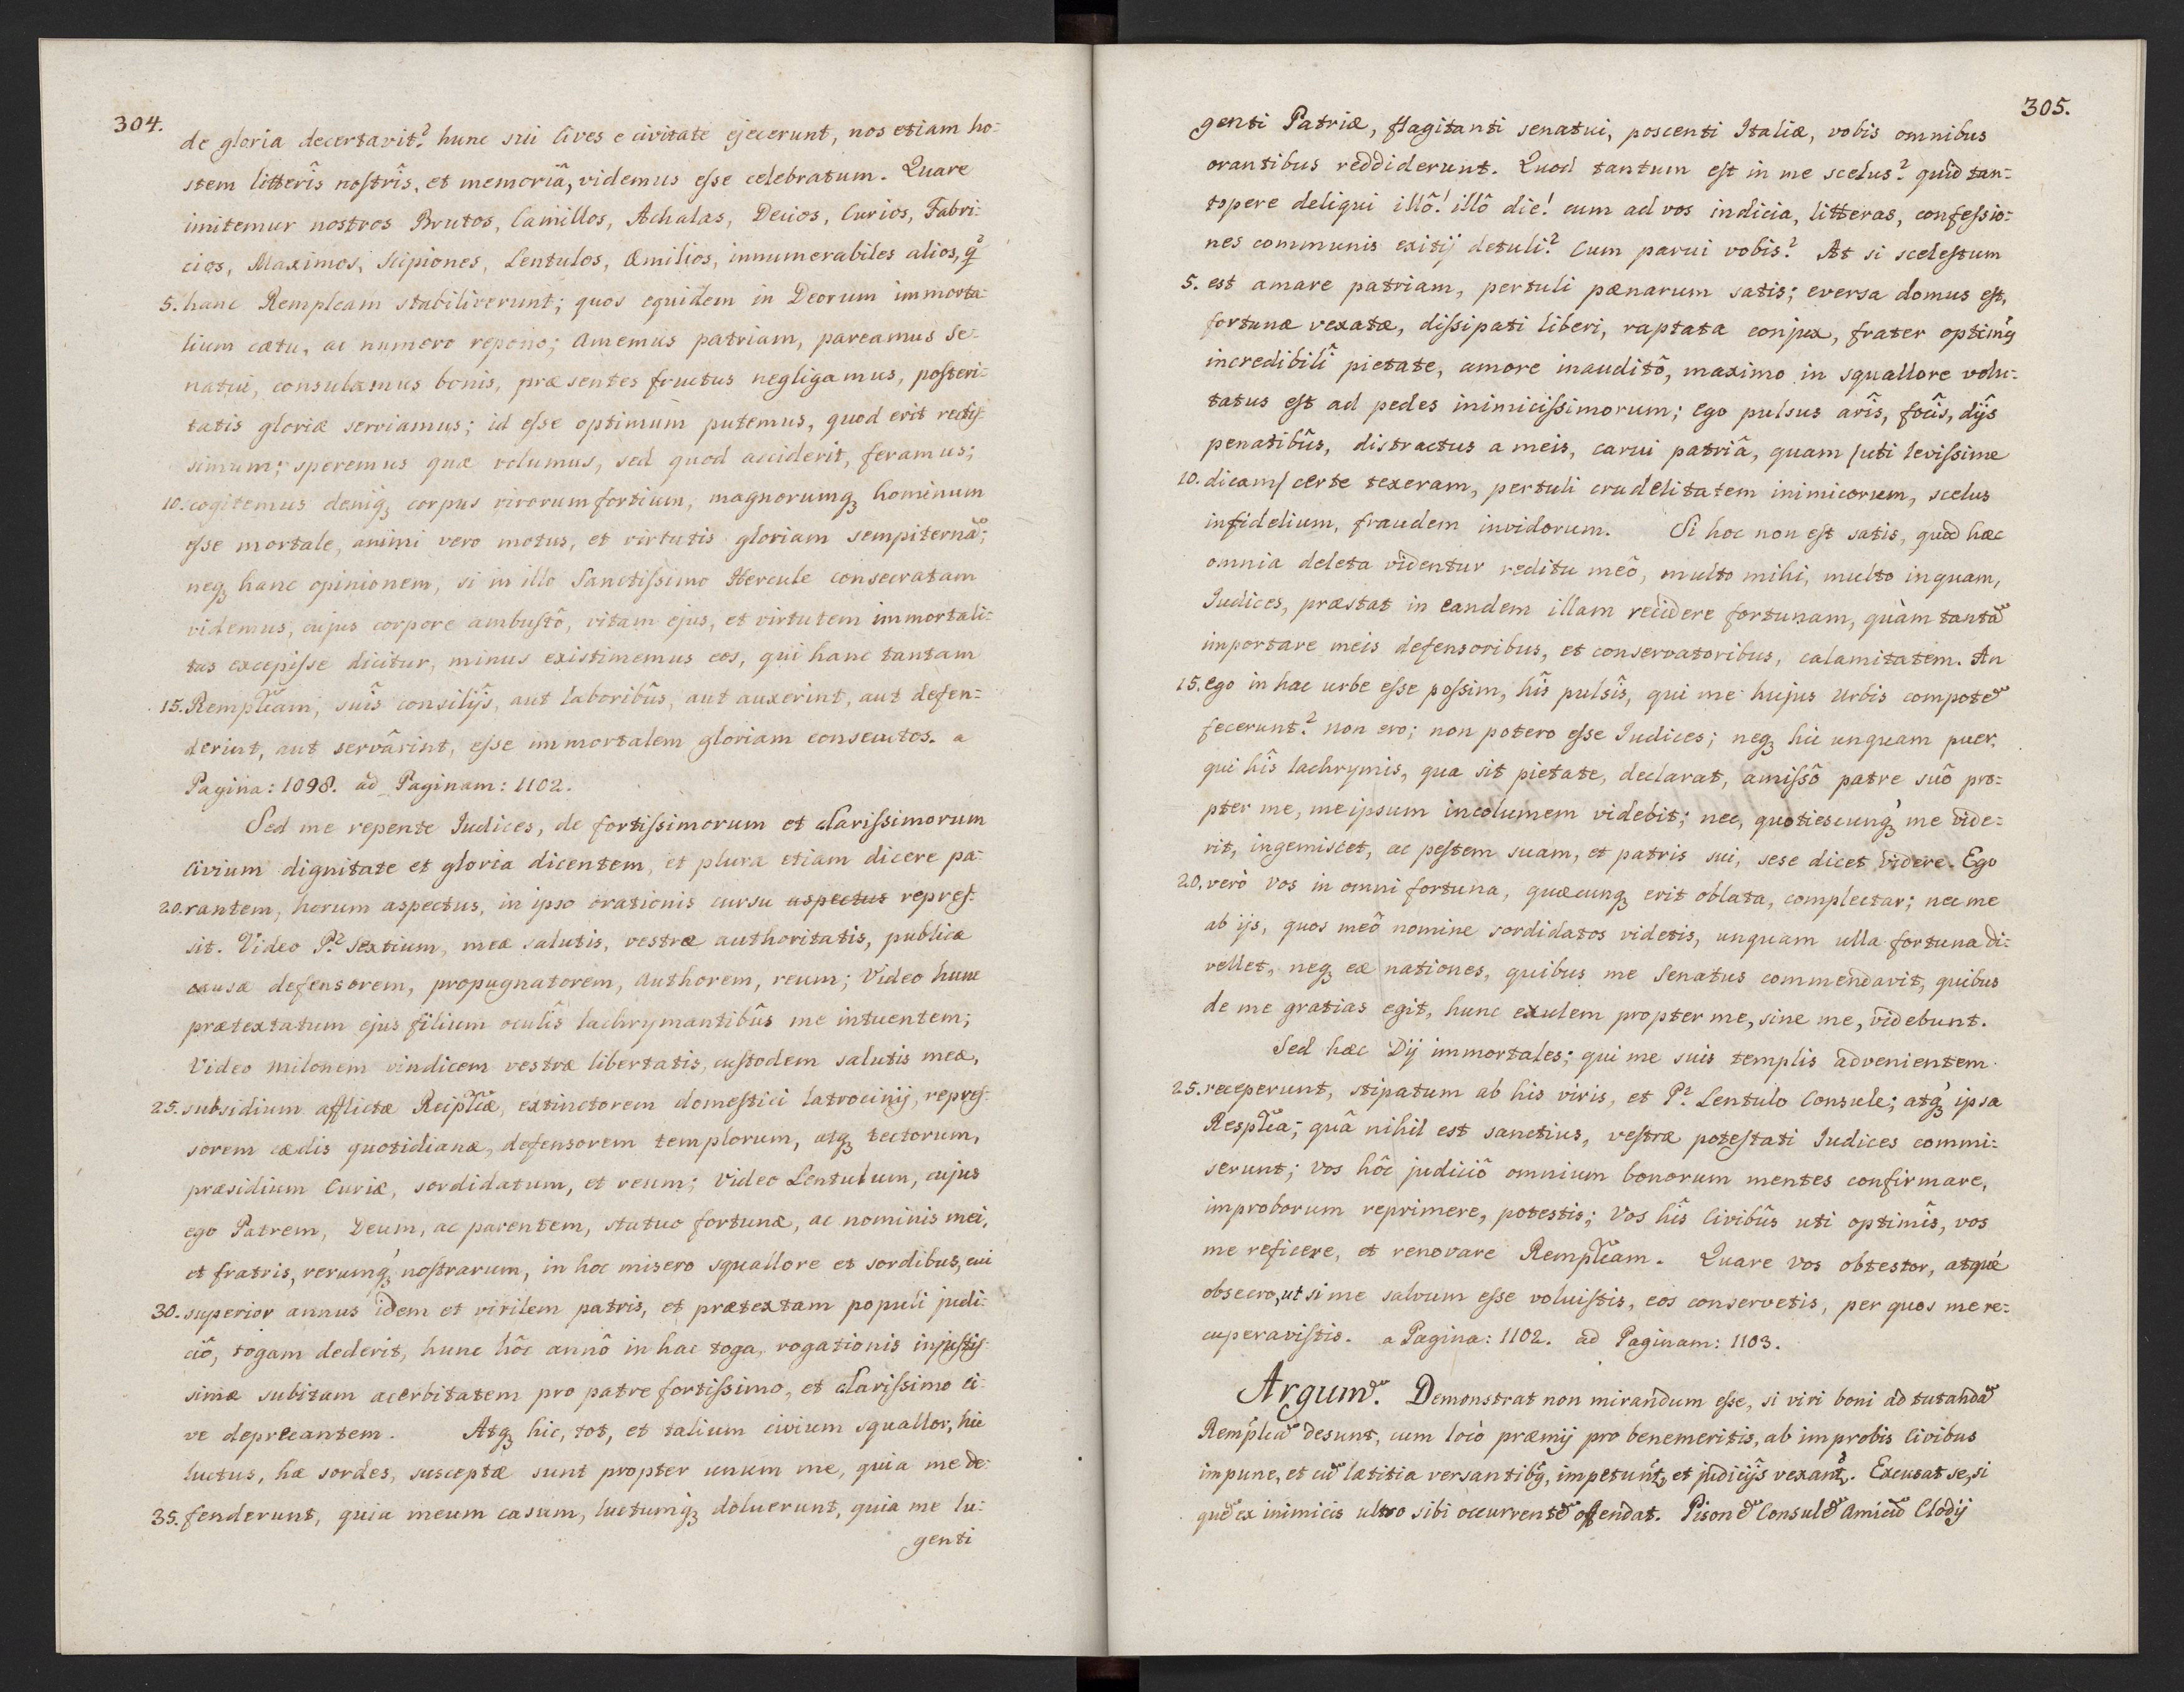 304.
de gloria decertavit? hunc sui Cives e civitate ejecerunt, nos etiam ho=
stem litterîs nostrîs, et memoriâ, videmus esse celebratum. Quare
imitemur nostros Brutos, Camillos, Achalas, Decios, Curios, Fabri=
cios, Maximos, Scipiones, Lentulos, Æmilios, innumerabiles alios, q²
5. hanc Rempleam stabiliverunt; quos equidem in Deorum immorta=
lium cætu, ac numero repono; Amemus patriam, pareamus Se=
natui, consulamus bonis, præsentes fructus negligamus, posteri=
tatis gloriæ serviamus; id esse optimum putemus, quod erit rectis=
simum; speremus quæ volumus, sed quod acciderit, feramus;
10. cogitemus deniqꝫ corpus virorum fortium, magnorumqꝫ hominum
esse mortale, animi vero motus, et virtutis gloriam sempiternã;
neqꝫ hanc opinionem, si in illo Sanctissimo Hercule consecratam
videmus, cujus corpore ambustô, vitam ejus, et virtutem immortali=
tas excepisse dicitur, minus existimemus eos, qui hanc tantam
15. Rempl̃cam, suîs consilijs, aut laboribûs, aut auxerint, aut defen=
derint, aut servârint, esse immortalem gloriam consecutos. a
Pagina: 1098. ad Paginam: 1102.
Sed me repente Judices, de fortissimorum et clarissimorum
Civium dignitate et gloria dicentem, et plura etiam dicere pa=
20. rantem, horum aspectus, in ipso orationis cursu aspectus repres=
sit. Video P? Sextium, meæ salutis, vestræ authoritatis, publicæ
causæ defensorem, propugnatorem, Authorem, reum; Video hunc
prætextatum ejus filium oculîs lachrymantibûs me intuentem;
Video Milonem vindicem vestræ libertatis, custodem salutis meæ,
25. subsidium afflictæ Reipl̃cæ, extinctorem domestici latrocinij, repres=
sorem cædis quotidianæ, defensorem templorum, atqꝫ tectorum,
præsidium Curiæ, sordidatum, et reum; Video Lentulum, cujus
ego Patrem, Deum, ac parentem, statuo fortunæ, ac nominis mei,
et fratris, rerumqꝫ nostrarum, in hoc misero squallore et sordibus, cui
30. superior annus idem et virilem patris, et prætextam populi judi=
ciô, togam dederit, hunc hôc annô in hac toga, rogationis injustis=
simæ subitam acerbitatem pro patre fortissimo, et clarissimo ci=
ve deprecantem. Atqꝫ hic, tot, et talium civium squallor, hic
luctus, hæ sordes, susceptæ sunt propter unum me, quia me de=
35. fenderunt, quia meum casum, luctumqꝫ doluerunt, quia me lu=
genti
305.
genti Patriæ, flagitanti senatui, poscenti Italiæ, vobis omnibus
orantibus reddiderunt. Quod tantum est in me scelus? quid tan=
topere deliqui illô! illô die! cum ad vos indicia, litteras, confessio=
nes communis exitij detuli? Cum parui vobis? At si scelestum
5. est amare patriam, pertuli pænarum satis; eversa domus est,
fortunæ vexatæ, dissipati liberi, raptata conjux, frater optimꝰ
incredibilî pietate, amore inauditô, maximo in squallore volu=
tatus est ad pedes inimicissimorum; Ego pulsus arîs, focîs, dijs
penatibûs, distractus a meis, carui patriâ, quam /uti levissime
10. dicam/ certe texeram, pertuli crudelitatem inimicorum, scelus
infidelium, fraudem invidorum. Si hoc non est satis, quod hæc
omnia deleta videntur reditu meô, multo mihi, multo inquam,
Judices, præstat in eandem illam recidere fortunam, quàm tantã
importare meis defensoribus, et conservatoribus, calamitatem. An
15. ego in hac urbe esse possim, hîs pulsîs, qui me hujus Urbis compotẽ
fecerunt? non ero; non potero esse Judices; neqꝫ hic unquam puer,
qui hîs lachrymis, qua sit pietate, declarat, amissô patre suô pro=
pter me, me ipsum incolumem videbit; nec, quotiescunqꝫ me vide=
rit, ingemiscet, ac pestem suam, et patris sui, sese dicet videre. Ego
20. verò vos in omni fortuna, quæcunqꝫ erit oblata, complectar; nec me
ab ijs, quos meô nomine sordidatos videtis, unquam ulla fortuna di=
vellet, neqꝫ eæ nationes, quibus me Senatus commendavit, quibus
de me gratias egit, hunc exulem propter me, sine me, videbunt.
Sed hæc Dij immortales; qui me suis templis advenientem
25. receperunt, stipatum ab his viris, et P? Lentulo Consule; atqꝫ ipsa
Respl̃ca; quâ nihil est sanctius, vestræ potestati Judices commi=
serunt; Vos hôc judiciô omnium bonorum mentes confirmare,
improborum reprimere, potestis; Vos hîs Civibûs uti optimîs, vos
me reficere, et renovare Rempl̃cam. Quare vos obtestor, atque
obsecro, ut si me salvum esse voluistis, eos conservetis, per quos me re=
cuperavistis. a Pagina: 1102. ad Paginam: 1103.
Argum̃. Demonstrat non mirandum esse, si viri boni ad tutandã
Rempl̃cã desunt, cum locò præmij pro benemeritis, ab improbis Civibus
impune, et cũ lætitia versantibꝰ, impetunt͛, et judicijs vexant͛. Excusat se, si
quẽ ex inimicis ultro sibi occurrentẽ offendat. Pisonẽ Consulẽ Amicũ Clodij